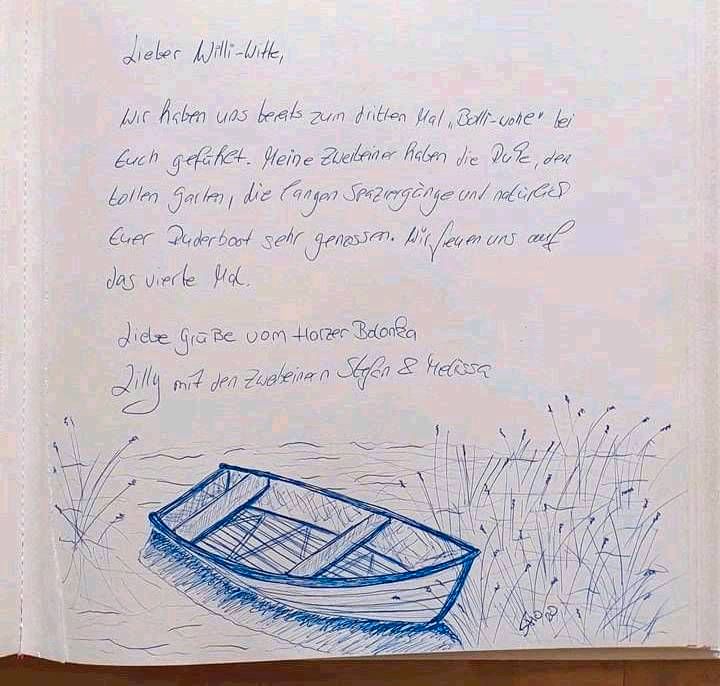 Lieber Willi-Witte,
Wir haben uns bereits zum dritten Mal „Bolli-wohl" bei
Euch gefühlt. Meine Zweibeiner haben die Ruhe, den
tollen Garten, die langen Spaziergänge und natürlich
Euer Ruderboot sehr genossen. Wir freuen uns auf
das vierte Mal.
Liebe Grüße vom Harzer Bolonka
Lilly mit den Zweibeinern Stefan & Melissa